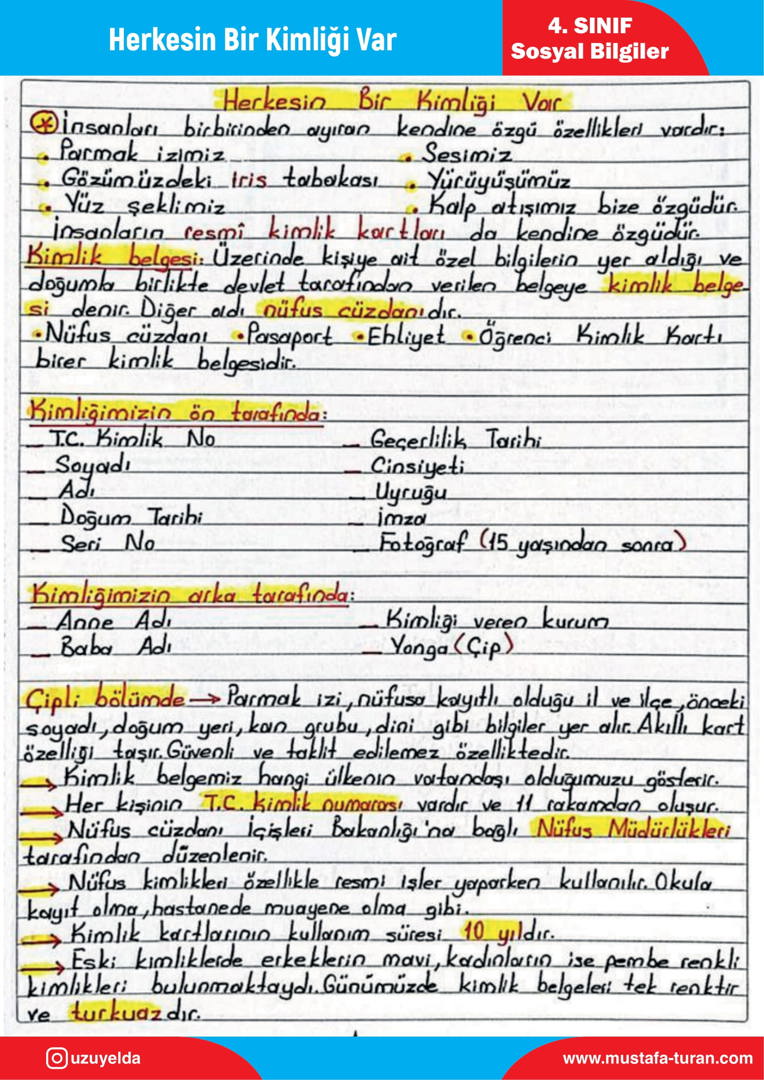 Herkesin Bir Kimliği Var
4. SINIF
Sosyal Bilgiler
Herkesin Bir Kimliği Var
* İnsanları birbirinden ayıran kendine özgü özellikleri vardır:
• Parmak izimiz • Sesimiz
• Gözümüzdeki iris tabakası • Yürüyüşümüz
• Yüz şeklimiz • Kalp atışımız bize özgüdür.
İnsanların resmî kimlik kartları da kendine özgüdür.
Kimlik belgesi: Üzerinde kişiye ait özel bilgilerin yer aldığı ve
doğumla birlikte devlet tarafından verilen belgeye kimlik belge-
si denir. Diğer adı nüfus cüzdanıdır.
• Nüfus cüzdanı • Pasaport • Ehliyet • Öğrenci Kimlik Kartı
birer kimlik belgesidir.
Kimliğimizin ön tarafında:
– T.C. Kimlik No – Geçerlilik Tarihi
– Soyadı – Cinsiyeti
– Adı – Uyruğu
– Doğum Tarihi – İmza
– Seri No – Fotoğraf (15 yaşından sonra)
Kimliğimizin arka tarafında:
– Anne Adı – Kimliği veren kurum
– Baba Adı – Yonga (Çip)
Çipli bölümde → Parmak izi, nüfusa kayıtlı olduğu il ve ilçe, önceki
soyadı, doğum yeri, kan grubu, dini gibi bilgiler yer alır. Akıllı kart
özelliği taşır. Güvenli ve taklit edilemez özelliktedir.
→ Kimlik belgemiz hangi ülkenin vatandaşı olduğumuzu gösterir.
→ Her kişinin T.C. kimlik numarası vardır ve 11 rakamdan oluşur.
→ Nüfus cüzdanı İçişleri Bakanlığı'na bağlı Nüfus Müdürlükleri
tarafından düzenlenir.
→ Nüfus kimlikleri özellikle resmi işler yaparken kullanılır. Okula
kayıt olma, hastanede muayene olma gibi.
→ Kimlik kartlarının kullanım süresi 10 yıldır.
→ Eski kimliklerde erkeklerin mavi, kadınların ise pembe renkli
kimlikleri bulunmaktaydı. Günümüzde kimlik belgeleri tek renktir
ve turkuazdır.
uzuyelda
www.mustafa-turan.com